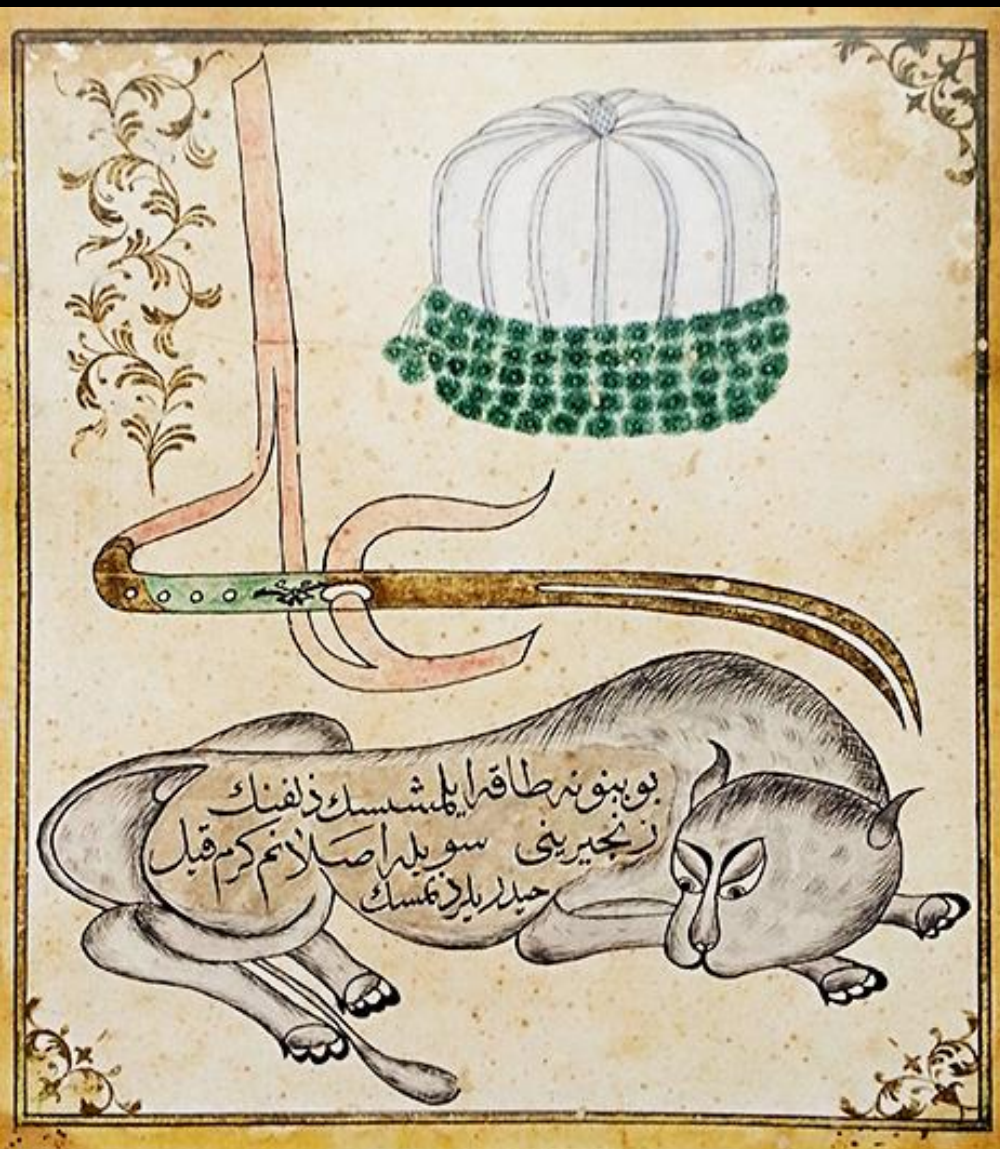 علي
بوينونه طاقه ايلمشسك ذلفنك
زنجيريني سويله اصلانم كرم قيل
حيدر يلرذنمسك